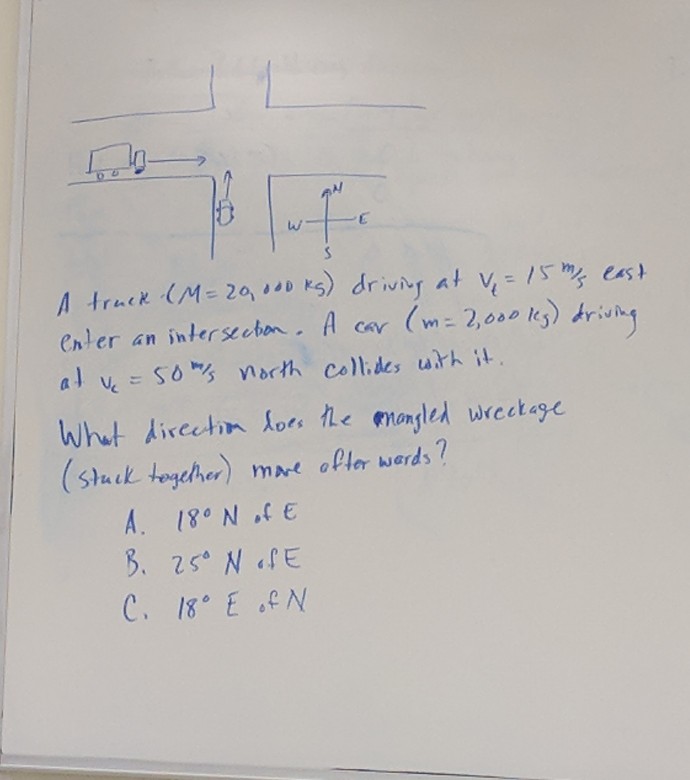 N
W E
S
A truck (M=20,000 kg) driving at v_t = 15 m/s east
enter an intersection. A car (m=2,000 kg) driving
at v_c = 50 m/s north collides with it.
What direction does the mangled wreckage
(stuck together) move afterwards?
A. 18° N of E
B. 25° N of E
C. 18° E of N